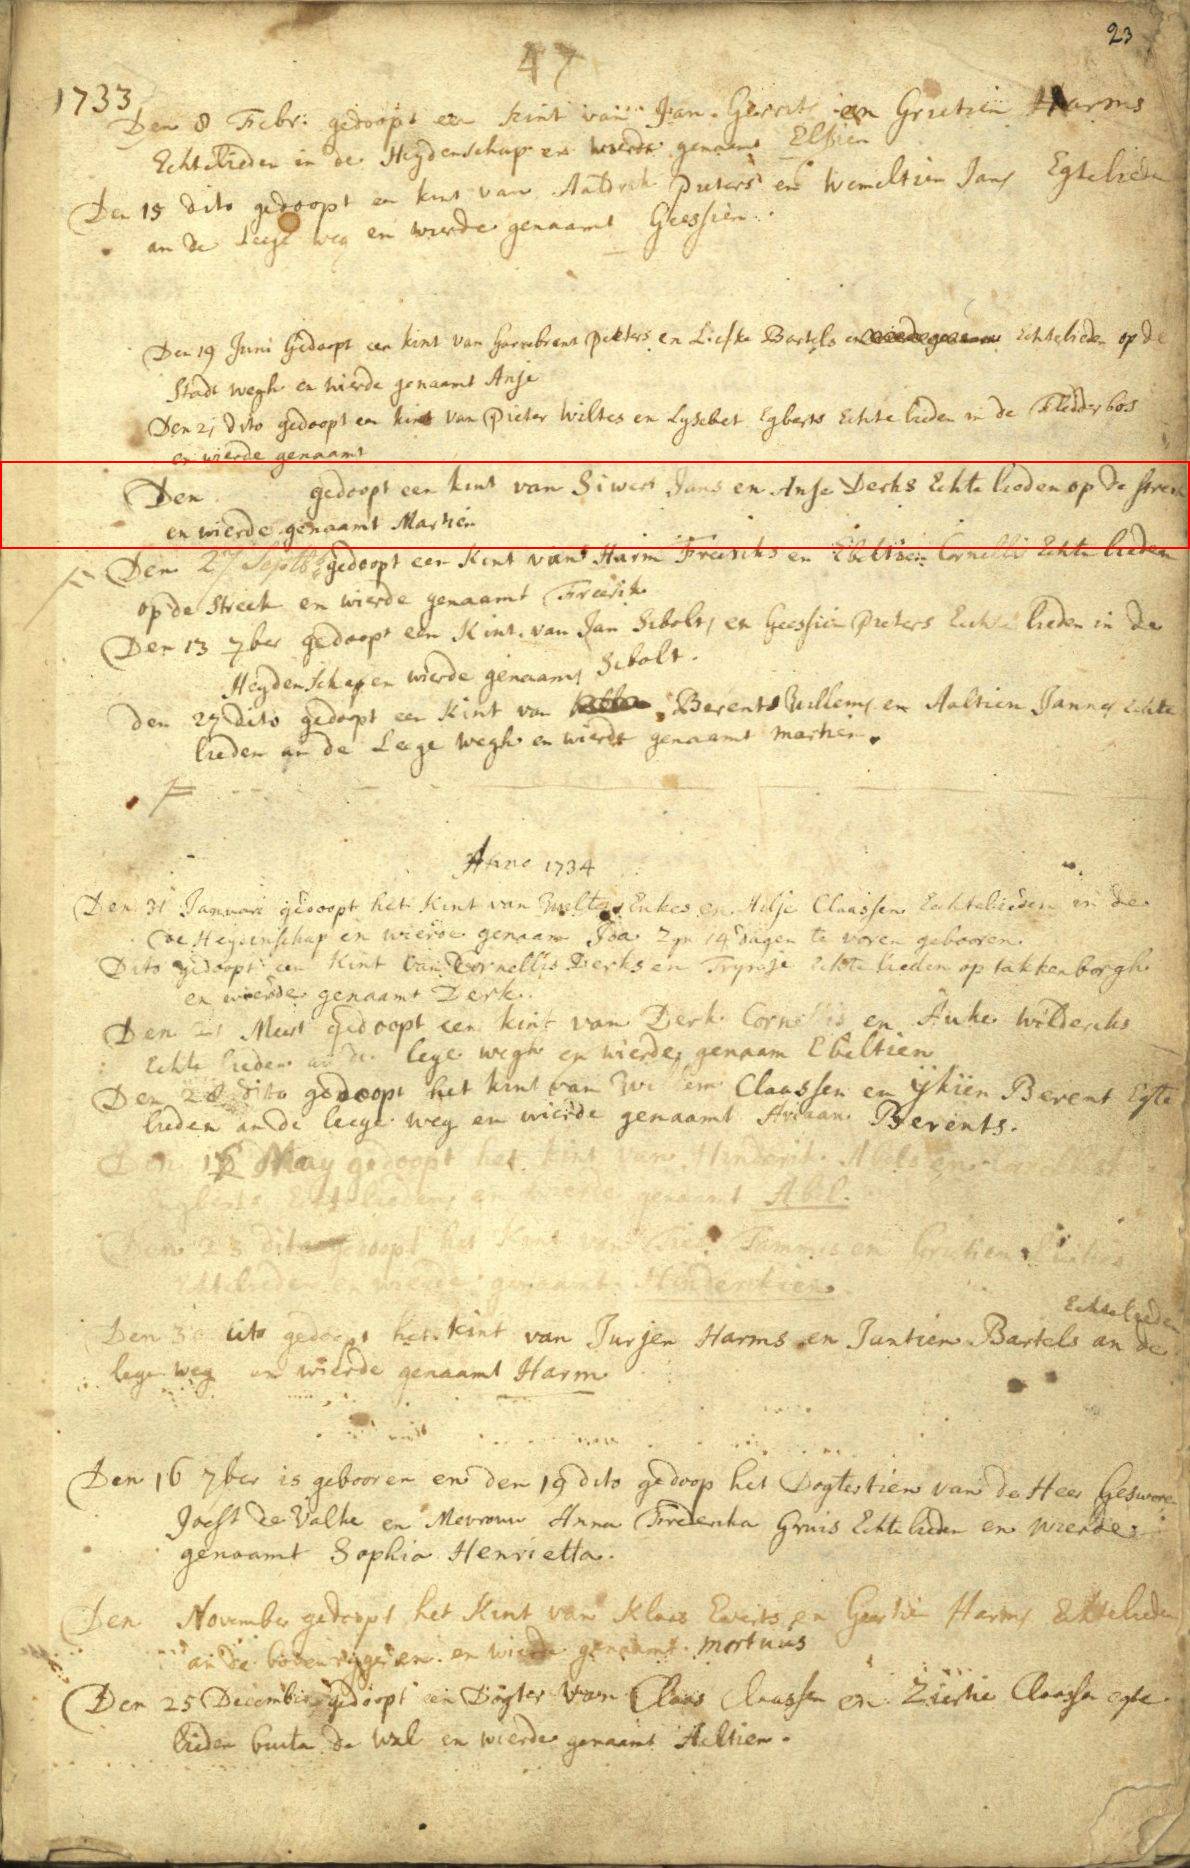 23
47
1733
Den 8 Febr: gedoopt een kint van Jan Gerrits en Grietien Harms
Echtelieden in de Heydenschap en wierde genaemt Elsien
Den 15 dito gedoopt en kint van Pieters en Wemeltien Jans Egtelieden
an de Leege weg en wierde genaamt Geessien.
Den 19 Juni Gedoopt een kint van Harrebrent Pieters en Liefke Bartels Echtelieden op de
Stadt wegh en wierde genaamt Anje
Den 21 dito gedoopt een kint van Pieter Wiltes en Lysebet Egberts Echte lieden in de Fledderbos
en wierde genaamt
Den gedoopt een kint van Siwert Jans en Anje Derks Echte lieden op de streek
en wierde genaamt Martien
Den 27 Septb: gedoopt een Kint van Harm Freeriks en Ebeltien Cornelli Echte lieden
op de Streek en wierde genaamt Freerik
Den 13 7ber gedoopt een Kint van Jan Sibolts en Geessien Pieters Echte lieden in de
Heydenschap en wierde genaamt Sibolt.
den 27 dito gedoopt een Kint van Berent Willems en Aaltien Jannes Echte
lieden an de Leege wegh en wierde genaamt martien.
Anno 1734
Den 31 Januari gedoopt het Kint van Wolter Eukes en Hilje Claassen Echtelieden in de
de Heydenschap en wierde genaam Ida Zyn 14 dagen te voren gebooren
Dito gedoopt een Kint van Cornellis Derks en Tryntje Echte lieden op takkenborgh
en wierde genaamt Derk.
Den 21 Meert gedoopt een kint van Derk Cornellis en Auke Wilderiks
Echte lieden an de lege wegh en wierde genaam Ebeltien
Den 28 dito gedoopt het kint van Willem Claassen en Ykien Berent Egte
lieden an de leege weg en wierde genaamt Ariaan Berents.
Den 16 May gedoopt het kint van Hinderik Abels en
Egberts Echtelieden en wierde genaamt Abel.
Den 23 dito gedoopt het Kint van Tammes en Grietien
Echtelieden en wierde genaamt Hinderikien
Den 30 dito gedoopt het kint van Jurjen Harms en Juntien Bartels Echtelieden an de
lege weg en wierde genaamt Harm
Den 16 7ber is gebooren en den 19 dito gedoop het Dogtertien van de Heer Geswore
Joost de Valke en Mevrouw Anna Frederika Gruis Echtelieden en wierde
genaamt Sophia Henrietta.
Den November gedoopt het Kint van Klaas Everts en Geertien Harms Echtelieden
an de boven en wierde genaamt mortuus
Den 25 December gedoopt een Dogter van Claas Claassen en Claassen egte
lieden buite de wal en wierde genaamt Aeltien.